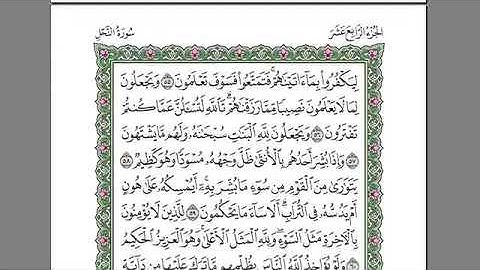 الجزء الرابع عشر
سورة النحل
لِيَكْفُرُوا۟ بِمَآ ءَاتَيْنَٰهُمْ فَتَمَتَّعُوا۟ فَسَوْفَ تَعْلَمُونَ ٥٥ وَيَجْعَلُونَ
لِمَا لَا يَعْلَمُونَ نَصِيبًا مِّمَّا رَزَقْنَٰهُمْ تَٱللَّهِ لَتُسْـَٔلُنَّ عَمَّا كُنتُمْ
تَفْتَرُونَ ٥٦ وَيَجْعَلُونَ لِلَّهِ ٱلْبَنَٰتِ سُبْحَٰنَهُۥ وَلَهُم مَّا يَشْتَهُونَ
٥٧ وَإِذَا بُشِّرَ أَحَدُهُم بِٱلْأُنثَىٰ ظَلَّ وَجْهُهُۥ مُسْوَدًّا وَهُوَ كَظِيمٌ ٥٨
يَتَوَٰرَىٰ مِنَ ٱلْقَوْمِ مِن سُوٓءِ مَا بُشِّرَ بِهِۦٓ أَيُمْسِكُهُۥ عَلَىٰ هُونٍ
أَمْ يَدُسُّهُۥ فِى ٱلتُّرَابِ أَلَا سَآءَ مَا يَحْكُمُونَ ٥٩ لِلَّذِينَ لَا يُؤْمِنُونَ
بِٱلْءَاخِرَةِ مَثَلُ ٱلسَّوْءِ وَلِلَّهِ ٱلْمَثَلُ ٱلْأَعْلَىٰ وَهُوَ ٱلْعَزِيزُ ٱلْحَكِيمُ
٦٠ وَلَوْ يُؤَاخِذُ ٱللَّهُ ٱلنَّاسَ بِظُلْمِهِم مَّا تَرَكَ عَلَيْهَا مِن دَآبَّةٍ